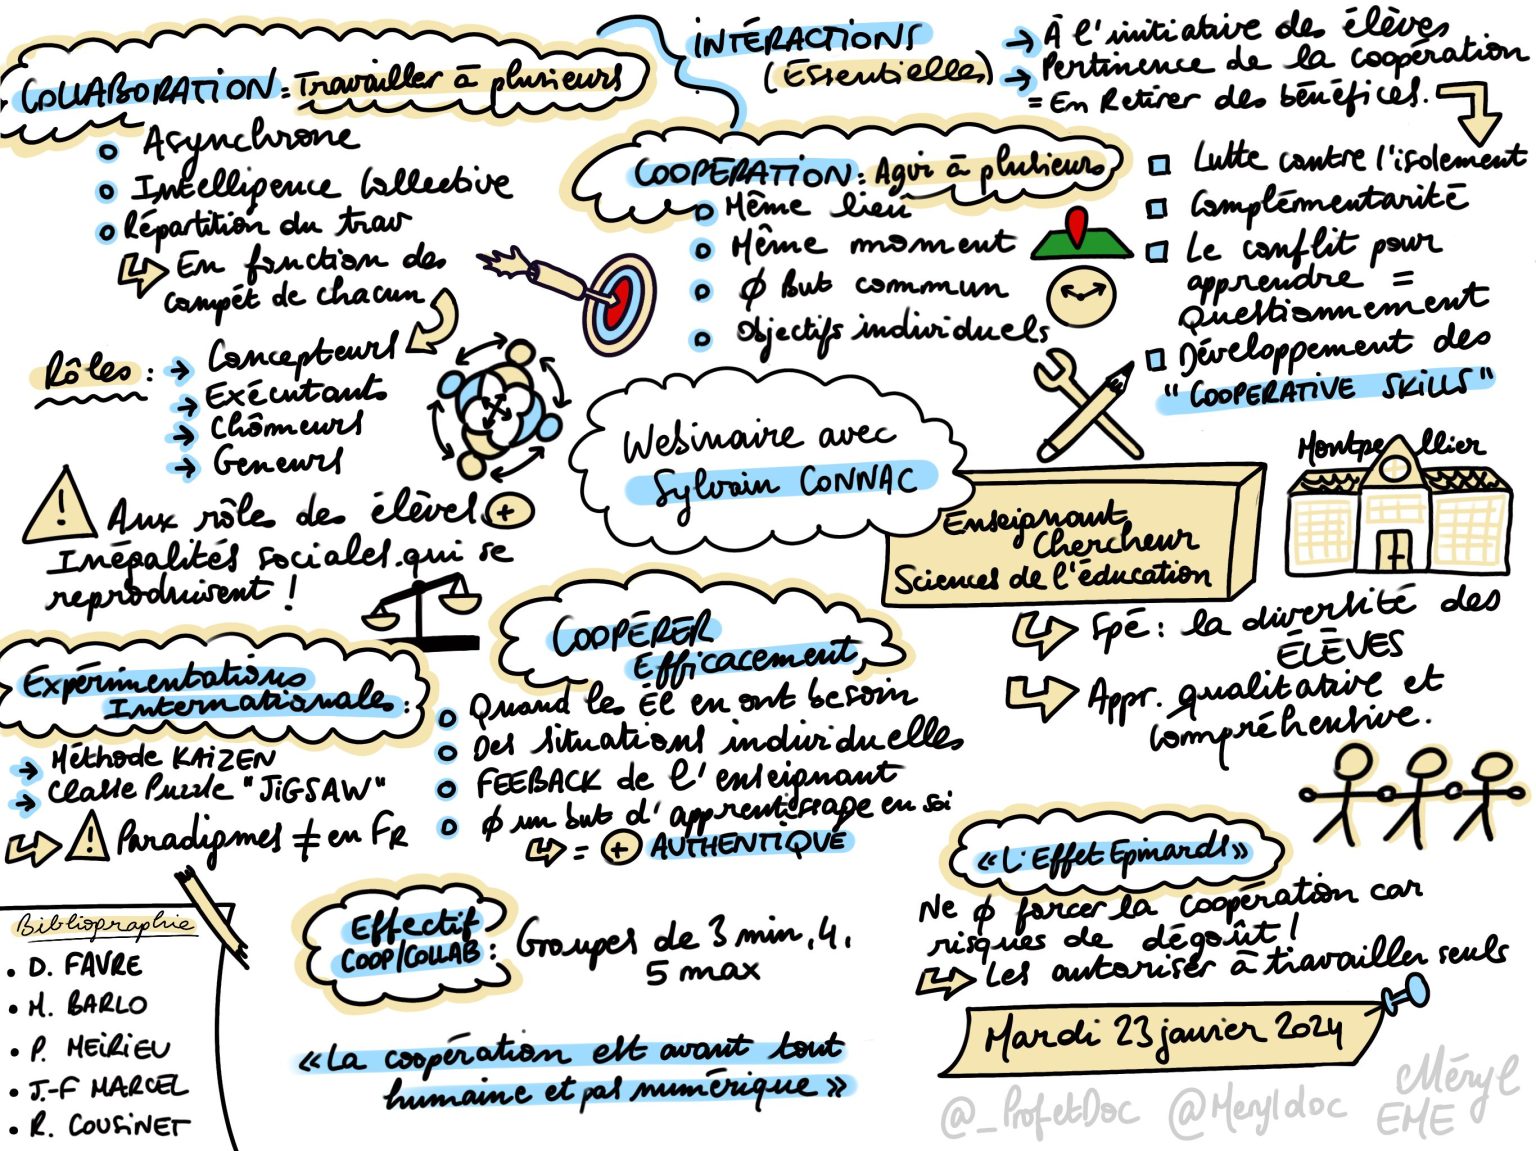 COLLABORATION : Travailler à plusieurs
Asynchrone
Intelligence Collective
Répartition du trav
En fonction des
compét de chacun
Rôles :
Concepteurs
Exécutants
Chômeurs
Geneurs
! Aux rôles des élèves +
Inégalités sociales qui se
reproduisent !
INTÉRACTIONS
(Essentielles)
À l'initiative des élèves
Pertinence de la coopération
= En Retirer des bénéfices.
COOPÉRATION : Agir à plusieurs
Même lieu
Même moment
Ø But commun
Objectifs individuels
Lutte contre l'isolement
Complémentarité
Le conflit pour
apprendre =
Questionnement
Développement des
"COOPERATIVE SKILLS"
Webinaire avec
Sylvain CONNAC
Enseignant
Chercheur
Sciences de l'éducation
Montpellier
Spé : la diversité des
ÉLÈVES
Appr. qualitative et
compréhensive.
Expérimentations
Internationales :
Méthode KAIZEN
Classe Puzzle "JIGSAW"
! Paradigmes ≠ en FR
COOPÉRER
Efficacement
Quand les Él en ont besoin
Des situations individuelles
FEEBACK de l'enseignant
Ø un but d'apprentissage en soi
= + AUTHENTIQUE
«L'Effet Epinards»
Ne Ø forcer la coopération car
risques de dégoût !
Les autoriser à travailler seuls
Bibliographie
• D. FAVRE
• M. BARLO
• P. MEIRIEU
• J-F MARCEL
• R. COUSINET
Effectif
COOP/COLLAB :
Groupes de 3 min, 4,
5 max
«La coopération est avant tout
humaine et pas numérique»
Mardi 23 janvier 2024
@_ProfetDoc @Meryldoc
Méryl
EME